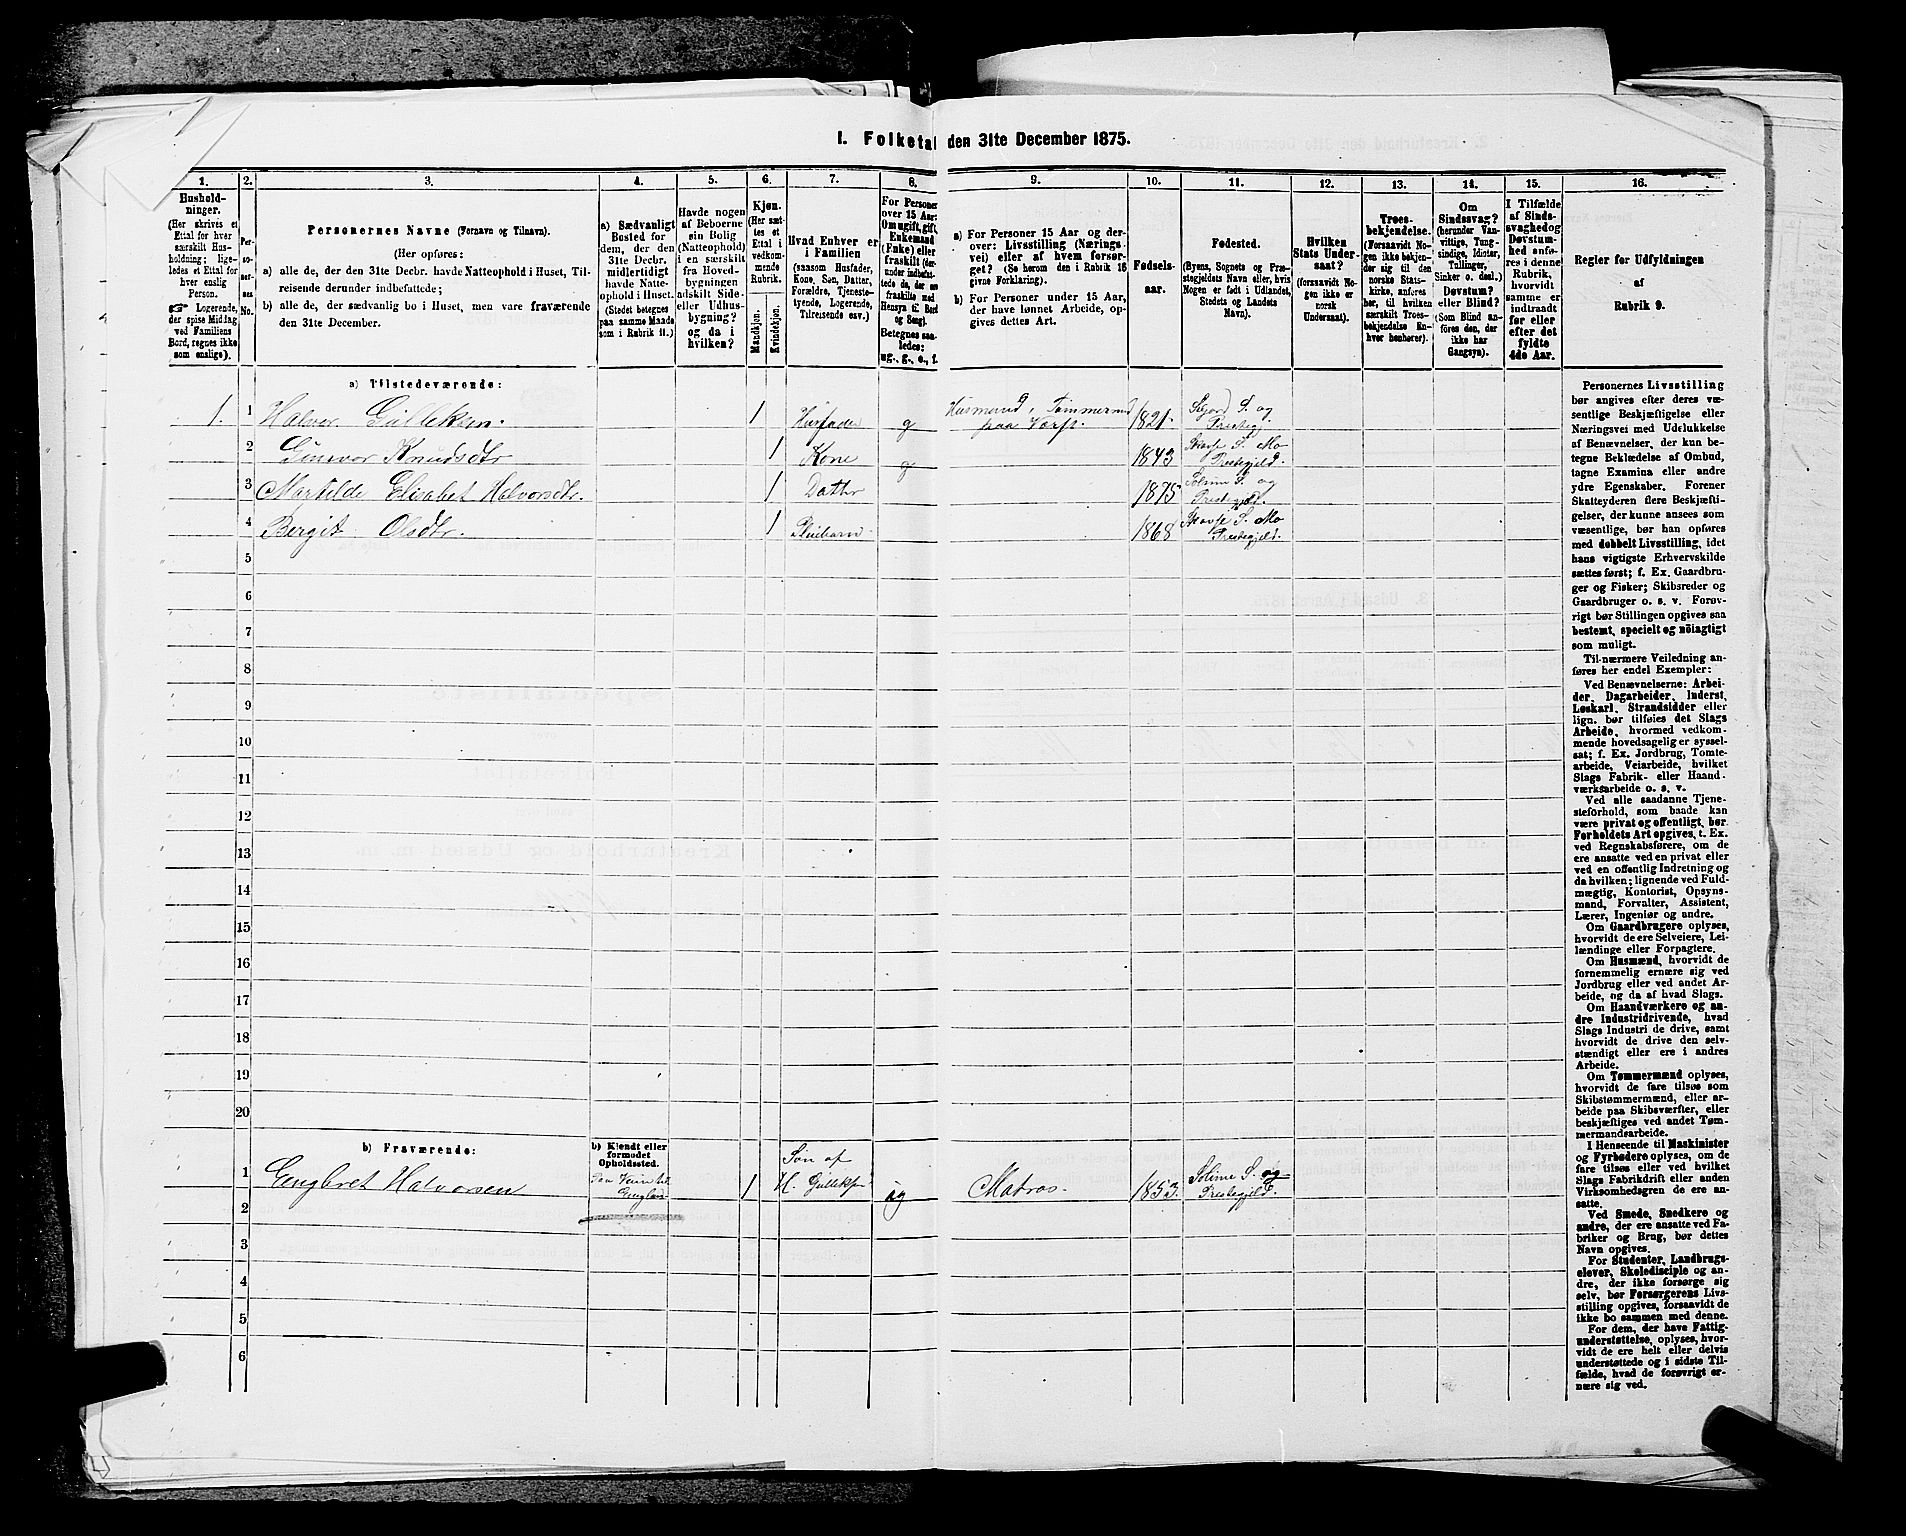 I. Folketal den 31te December 1875.
1. 2. 3. 4. 5. 6. 7. 8. 9. 10. 11. 12. 13. 14. 15. 16.
Hushold-
ninger.
(Her skrives et
Ettal for hver
særskilt Hus-
holdning; lige-
ledes et Ettal for
hver enslig
Person.
☞ Logerende,
der spise Middag
ved Familiens
Bord, regnes ikke
som enslige).
Per-
so-
ner-
nes
No.
Personernes Navne (Fornavn og Tilnavn).
(Her opføres:
a) alle de, der den 31te Decbr. havde Natteophold i Huset, Til-
reisende derunder indbefattede;
b) alle de, der sædvanlig bo i Huset, men vare fraværende
den 31te December.
a) Sædvanligt
Bosted for
dem, der den
31te Decbr.
midlertidigt
havde Natte-
ophold i Huset.
(Stedet betegnes
paa samme Maade
som i Rubrik 11.)
Havde nogen
af Beboerne
sin Bolig
(Natteophold)
i en særskilt
fra Hoved-
bygningen
adskilt Side-
eller Udhus-
bygning?
og da i
hvilken?
Kjøn.
(Her sæt-
tes et
Ettal i
vedkom-
mende
Rubrik.
Mandkjøn.
Kvindekjøn.
Hvad Enhver er
i Familien
(saasom Husfader,
Kone, Søn, Datter,
Forældre, Tjeneste-
tyende, Logerende,
Tilreisende osv.)
For Personer
over 15 Aar:
Om ugift, gift,
Enkemand
(Enke) eller
fraskilt (der-
under indbefat-
tede de, der ere
fraskilte med
Hensyn til Bord
og Seng).
Betegnes saa-
ledes:
ug., g., e., f.
a) For Personer 15 Aar og der-
over: Livsstilling (Nærings-
vei) eller af hvem forsør-
get? (Se herom den i Rubrik 16
givne Forklaring).
b) For Personer under 15 Aar,
der have lønnet Arbeide, op-
gives dettes Art.
Fødsels-
aar.
Fødested.
(Byens, Sognets og Præ-
stegjeldets Navn eller, hvis
Nogen er født i Udlandet,
Stedets og Landets
Navn).
Hvilken
Stats Under-
saat?
(forsaavidt No-
gen ikke er
norsk
Undersaat).
Troes-
bekjendelse.
(Forsaavidt No-
gen ikke bekjen-
der sig til den
norske Stats-
kirke, anføres
her, til hvilken
særskilt Troes-
bekjendelse En-
hver henhører).
Om
Sindssvag?
(herunder Van-
vittige, Tung-
sindige, Idioter,
Tullinger,
Sinker o. desl.)
Døvstum?
eller Blind?
(Som Blind an-
føres den, der
ikke har
Gangsyn).
I Tilfælde
af Sinds-
svaghed og
Døvstum-
hed anfø-
res i denne
Rubrik,
hvorvidt
samme er
indtraadt
før eller
efter det
fyldte
4de Aar.
Regler for Udfyldningen
af
Rubrik 9.
a) Tilstedeværende:
1. 1 Halvor Gulleksen. 1 Husfader g Husmand, Tømmermd paa Værft. 1821. S. og Prestegj.
2 Gunvor Knudsdtr 1 Kone g 1843 S. Mo Prestegjeld.
3 Martilde Elisabet Halvorsdtr. 1 Datter 1875 Solum S. og Prestegjeld.
4 Bergit Olsdtr. 1 Pleiebarn 1868 S. Mo Prestegjeld.
5
6
7
8
9
10
11
12
13
14
15
16
17
18
19
20
b) Fraværende:
b) Kjendt eller
formodet
Opholdssted.
1 Engbret Halvorsen 1 Søn af H. Gulleksen ug Matros. 1853. Solum S. og Prestegjeld.
2
3
4
5
6
Personernes Livsstilling
bør angives efter deres væ-
sentlige Beskjæftigelse eller
Næringsvei med Udelukkelse
af Benævnelser, der kun be-
tegne Beklædelse af Ombud,
tagne Examina eller andre
ydre Egenskaber. Forener
Skatteyderen flere Beskjæfti-
gelser, der kunne ansees som
væsentlige, bør han opføres
med dobbelt Livsstilling, idet
hans vigtigste Erhvervskilde
sættes først; f. Ex. Gaardbru-
ger og Fisker; Skibsreder og
Gaardbruger o. s. v. Forøv-
rigt bør Stillingen opgives saa
bestemt, specielt og nöiagtigt
som muligt.
Til nærmere Veiledning an-
føres her endel Exempler:
Ved Benævnelserne: Arbei-
der, Dagarbeider, Inderst,
Løskarl, Strandsidder eller
lign. bør tilføies det Slags
Arbeide, hvormed vedkom-
mende hovedsagelig er syssel-
sat; f. Ex. Jordbrug, Tomte-
arbeide, Veiarbeide, hvilket
Slags Fabrik- eller Haand-
værksarbeide o. s. v.
Ved alle saadanne Tjene-
steforhold, som baade kan
være privat og offentligt, bør
Forholdets Art opgives, t. Ex.
ved Regnskabsførere, om de
ere ansatte ved en privat eller
ved en offentlig Indretning og
da hvilken; lignende ved Fuld-
mægtig, Kontorist, Opsyns-
mand, Forvalter, Assistent,
Lærer, Ingeniør og andre.
Om Gaardbrugere oplyses,
hvorvidt de ere Selveiere, Lei-
lændinge eller Forpagtere.
Om Husmænd, hvorvidt de
fornemmelig ernære sig ved
Jordbrug eller ved andet Ar-
beide, og da af hvad Slags.
Om Haandværkere og an-
dre Industridrivende, hvad
Slags Industri de drive, samt
hvorvidt de drive den selv-
stændigt eller ere i andres
Arbeide.
Om Tømmermænd oplyses,
hvorvidt de fare tilsøs som
Skibstømmermænd, eller ar-
beide paa Skibsværfter, eller
beskjæftiges ved andet Tøm-
mermandsarbeide.
I Henseende til Maskinister
og Fyrbødere oplyses, om de
fare tilsøs eller ved hvilket
Slags Fabrikdrift eller anden
Virksomhedsgren de ere an-
satte.
Ved Smede, Snedkere og
andre, der ere ansatte ved Fa-
briker og Brug, bør dettes
Navn opgives.
For Studenter, Landbrugs-
elever, Skoledisciple og an-
dre, der ikke forsørge sig
selv, bør Forsørgerens Livs-
stilling opgives, forsaavidt de
ikke bo sammen med denne.
For dem, der have Fattig-
understøttelse, oplyses, hvor-
vidt de ere helt eller delvis
understøttede og i sidste Til-
fælde, hvad de forøvrigt er-
nære sig ved.